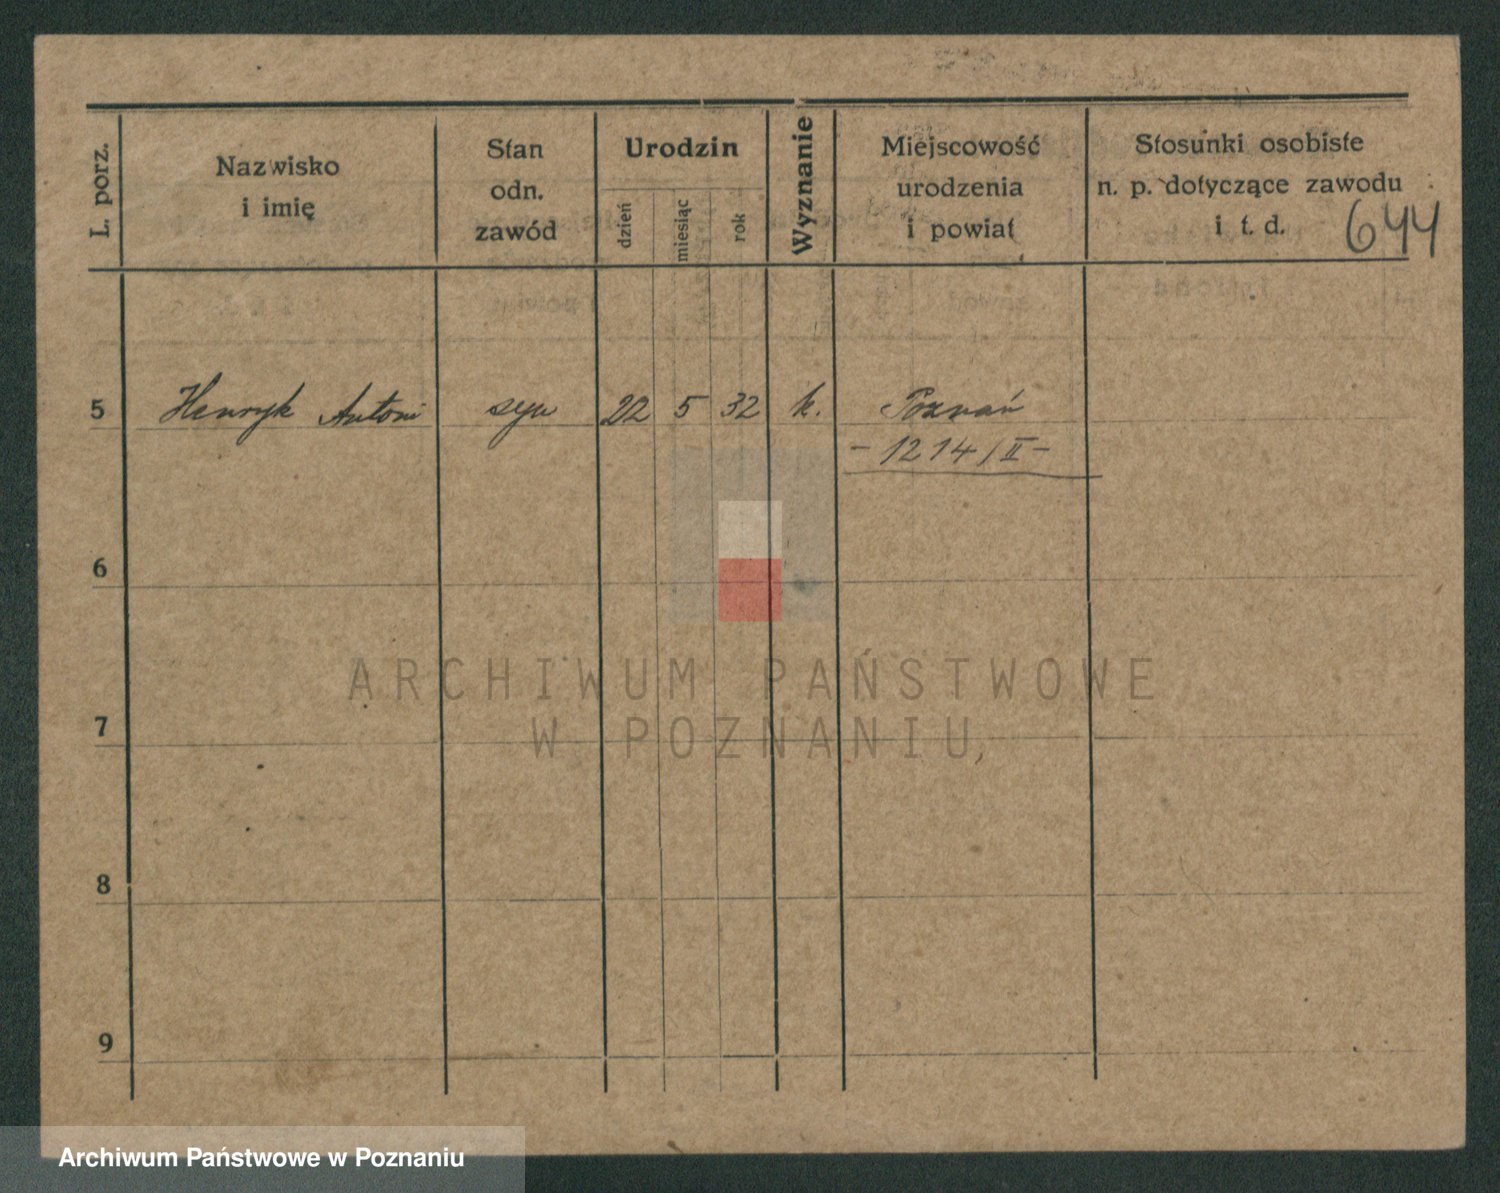 L. porz.
Nazwisko
i imię
Stan
odn.
zawód
Urodzin
dzień
miesiąc
rok
Wyznanie
Miejscowość
urodzenia
i powiat
Stosunki osobiste
n. p. dotyczące zawodu
i t. d.
644
5 Henryk Antoni syn 22 5 32 k. Poznań
- 1214/II -
6
7
8
9
ARCHIWUM PAŃSTWOWE
W POZNANIU
Archiwum Państwowe w Poznaniu